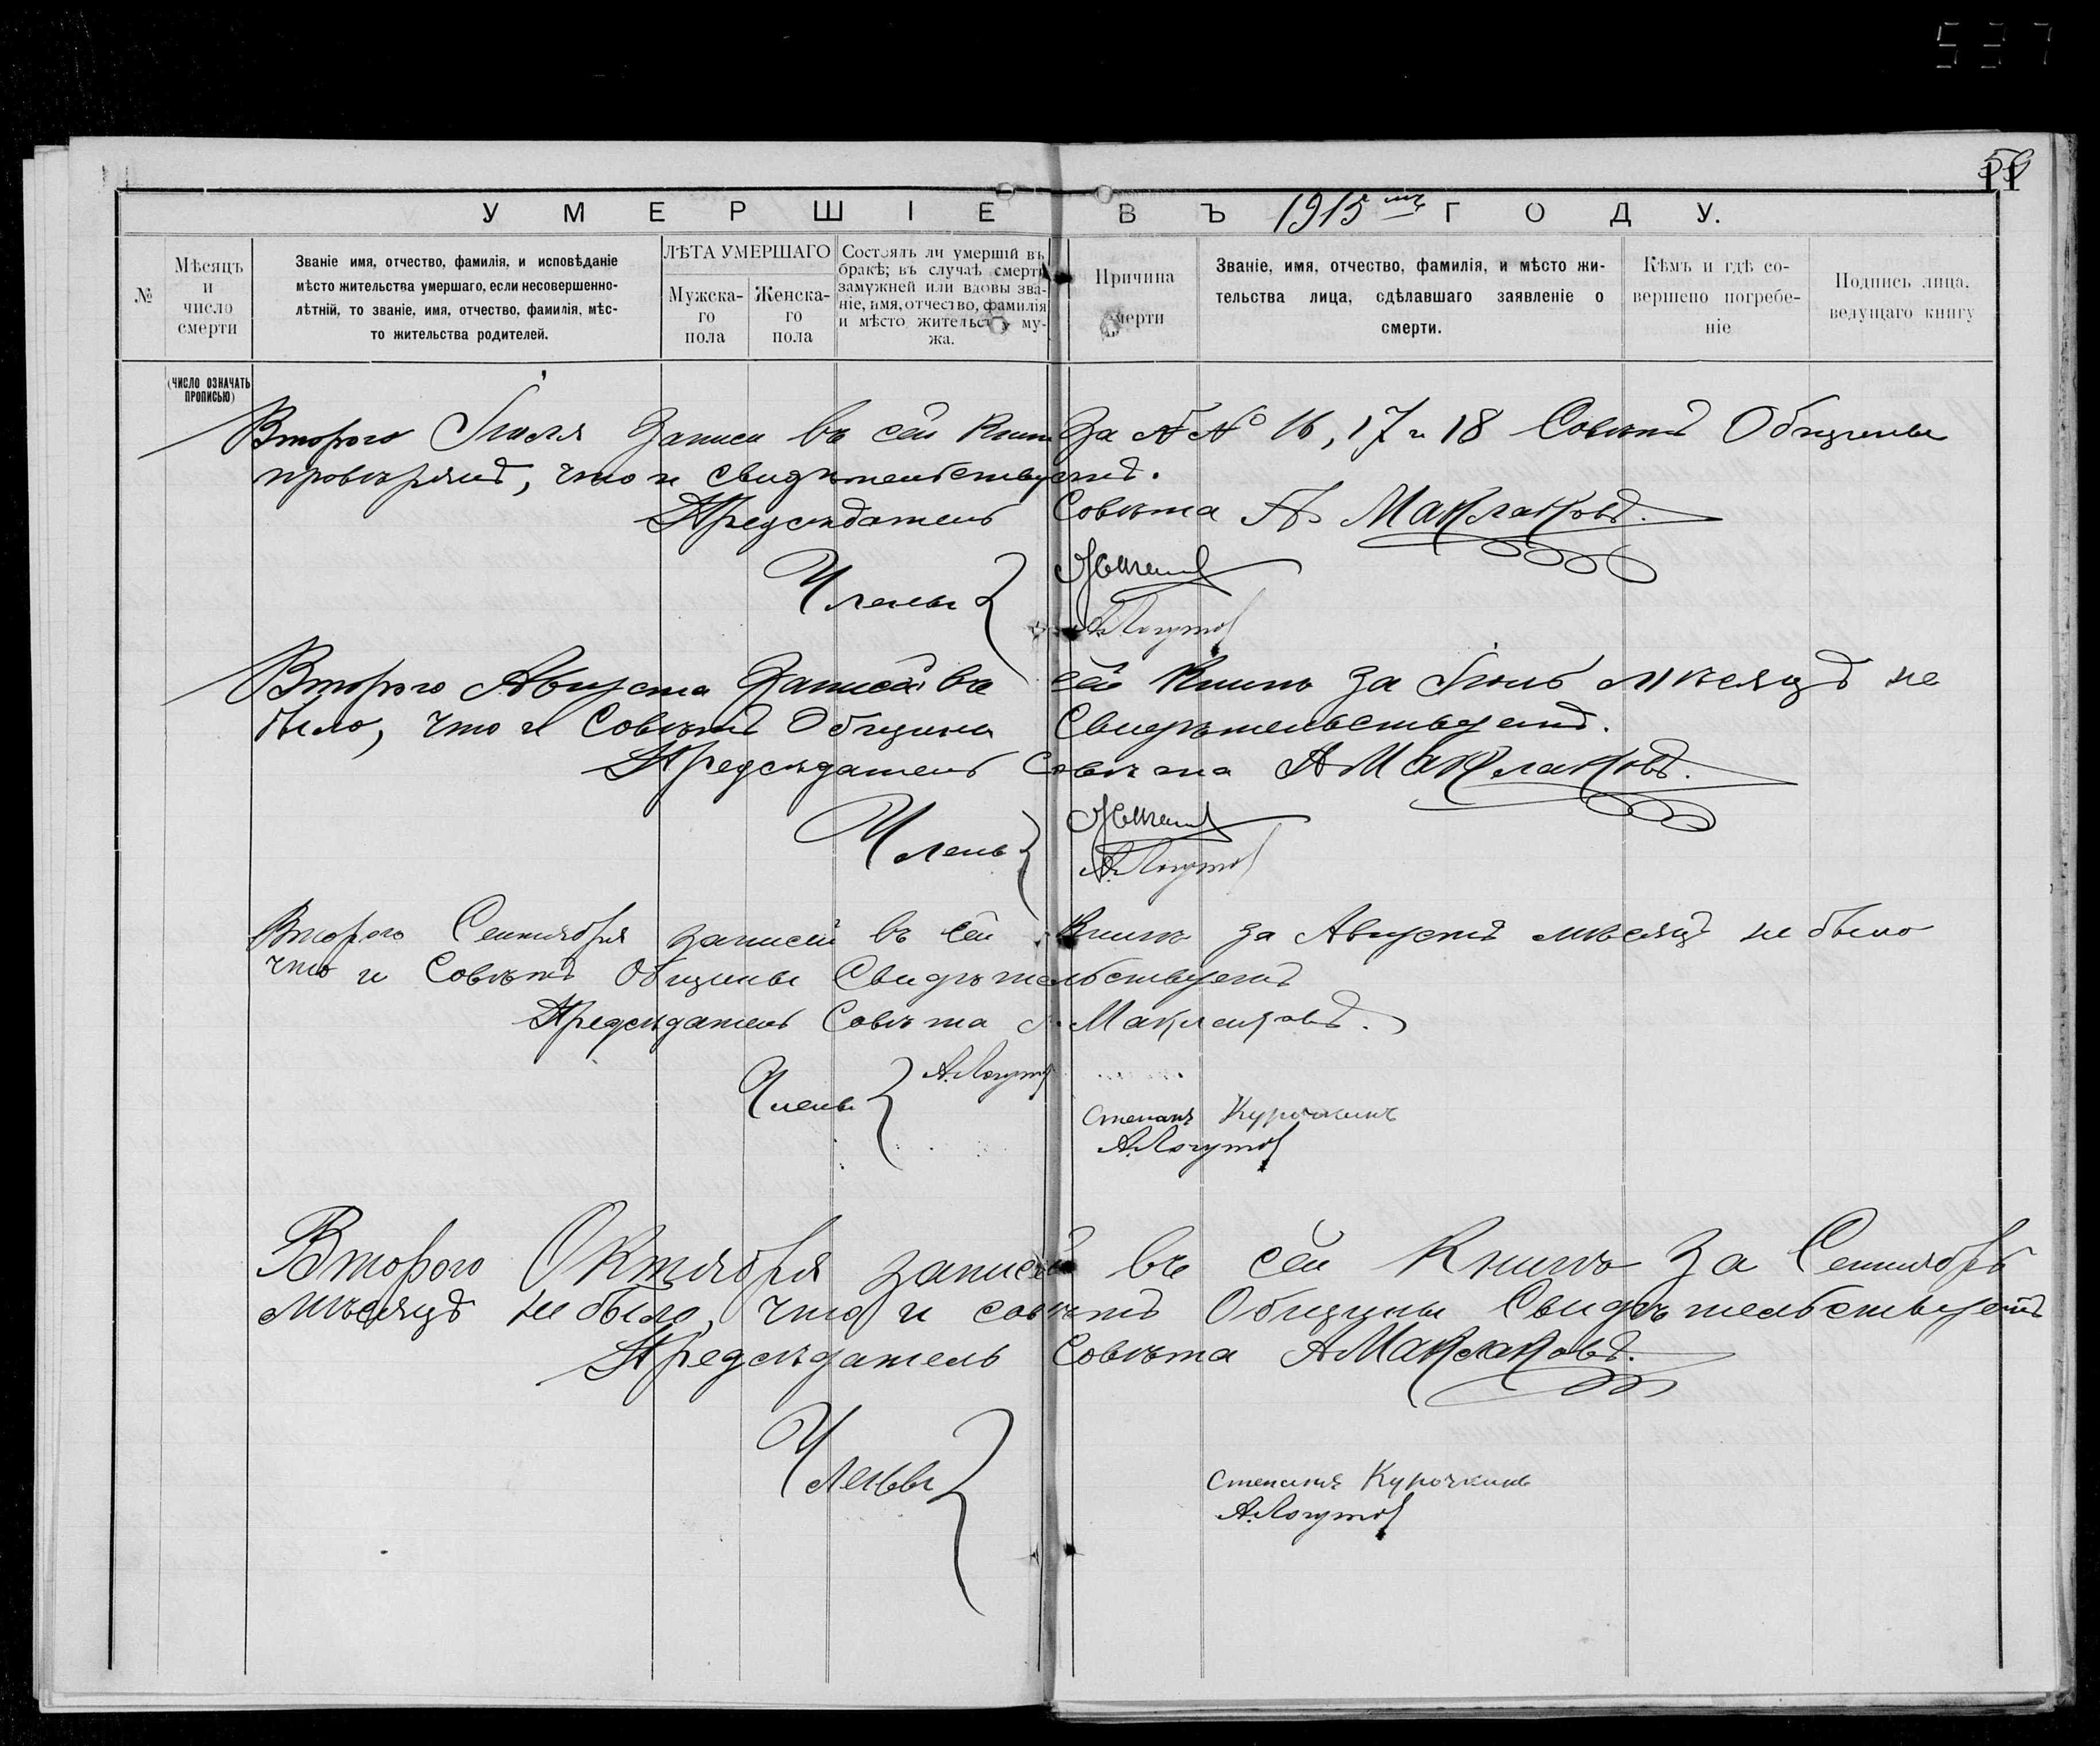 537
59
11
УМЕРШІЕ ВЪ 1915мъ ГОДУ.
№
Мѣсяцъ
и
число
смерти
Званіе имя, отчество, фамилія, и исповѣданіе
мѣсто жительства умершаго, если несовершенно-
лѣтній, то званіе, имя, отчество, фамилія, мѣс-
то жительства родителей.
ЛѢТА УМЕРШАГО
Мужска-
го
пола
Женска-
го
пола
Состоялъ ли умершій въ
бракѣ; въ случаѣ смерти
замужней или вдовы зва-
ніе, имя, отчество, фамилія
и мѣсто жительства му-
жа.
Причина
смерти
Званіе, имя, отчество, фамилія, и мѣсто жи-
тельства лица, сдѣлавшаго заявленіе о
смерти.
Кѣмъ и гдѣ со-
вершено погребе-
ніе
Подпись лица,
ведущаго книгу
(ЧИСЛО ОЗНАЧАТЬ
ПРОПИСЬЮ)
Второго Іюля записи въ сей книг за №№ 16, 17 и 18 Совѣтъ Общины
провѣрялъ, что и свидѣтельствуетъ.
Предсѣдатель Совѣта А Маклаковъ.
Члены
Второго Августа записей въ сей книгѣ за Іюль мѣсяцъ не
было, что и Совѣтъ Общины Свидѣтельствуетъ.
Предсѣдатель Совѣта А Маклаковъ.
Члены
А. Логутов
Второго Сентября записей въ сей книгѣ за Августъ мѣсяцъ не было
что и Совѣтъ Общины Свидѣтельствуетъ
Предсѣдатель Совѣта А. Маклаковъ.
Члены А. Логутов
Степанъ Курочкинъ
А. Логутов
Второго Октября записей въ сей книгѣ за Сентябрь
мѣсяцъ не было, что и совѣтъ Общины Свидѣтельствуетъ
Предсѣдатель Совѣта А Маклаковъ.
Члены
Степанъ Курочкинъ
А. Логутов